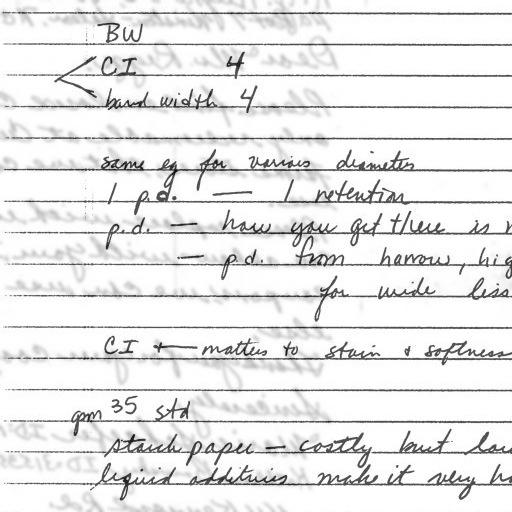 BW
CI 4
band width 4
same eq for various diameters
1 p.d. — 1 retention
p.d. — how you get there is
— p.d. from narrow, hig
for wide less
CI ← matters to stain & softness
gm 35 std
starch paper — costly but low
liquid additives make it very ha